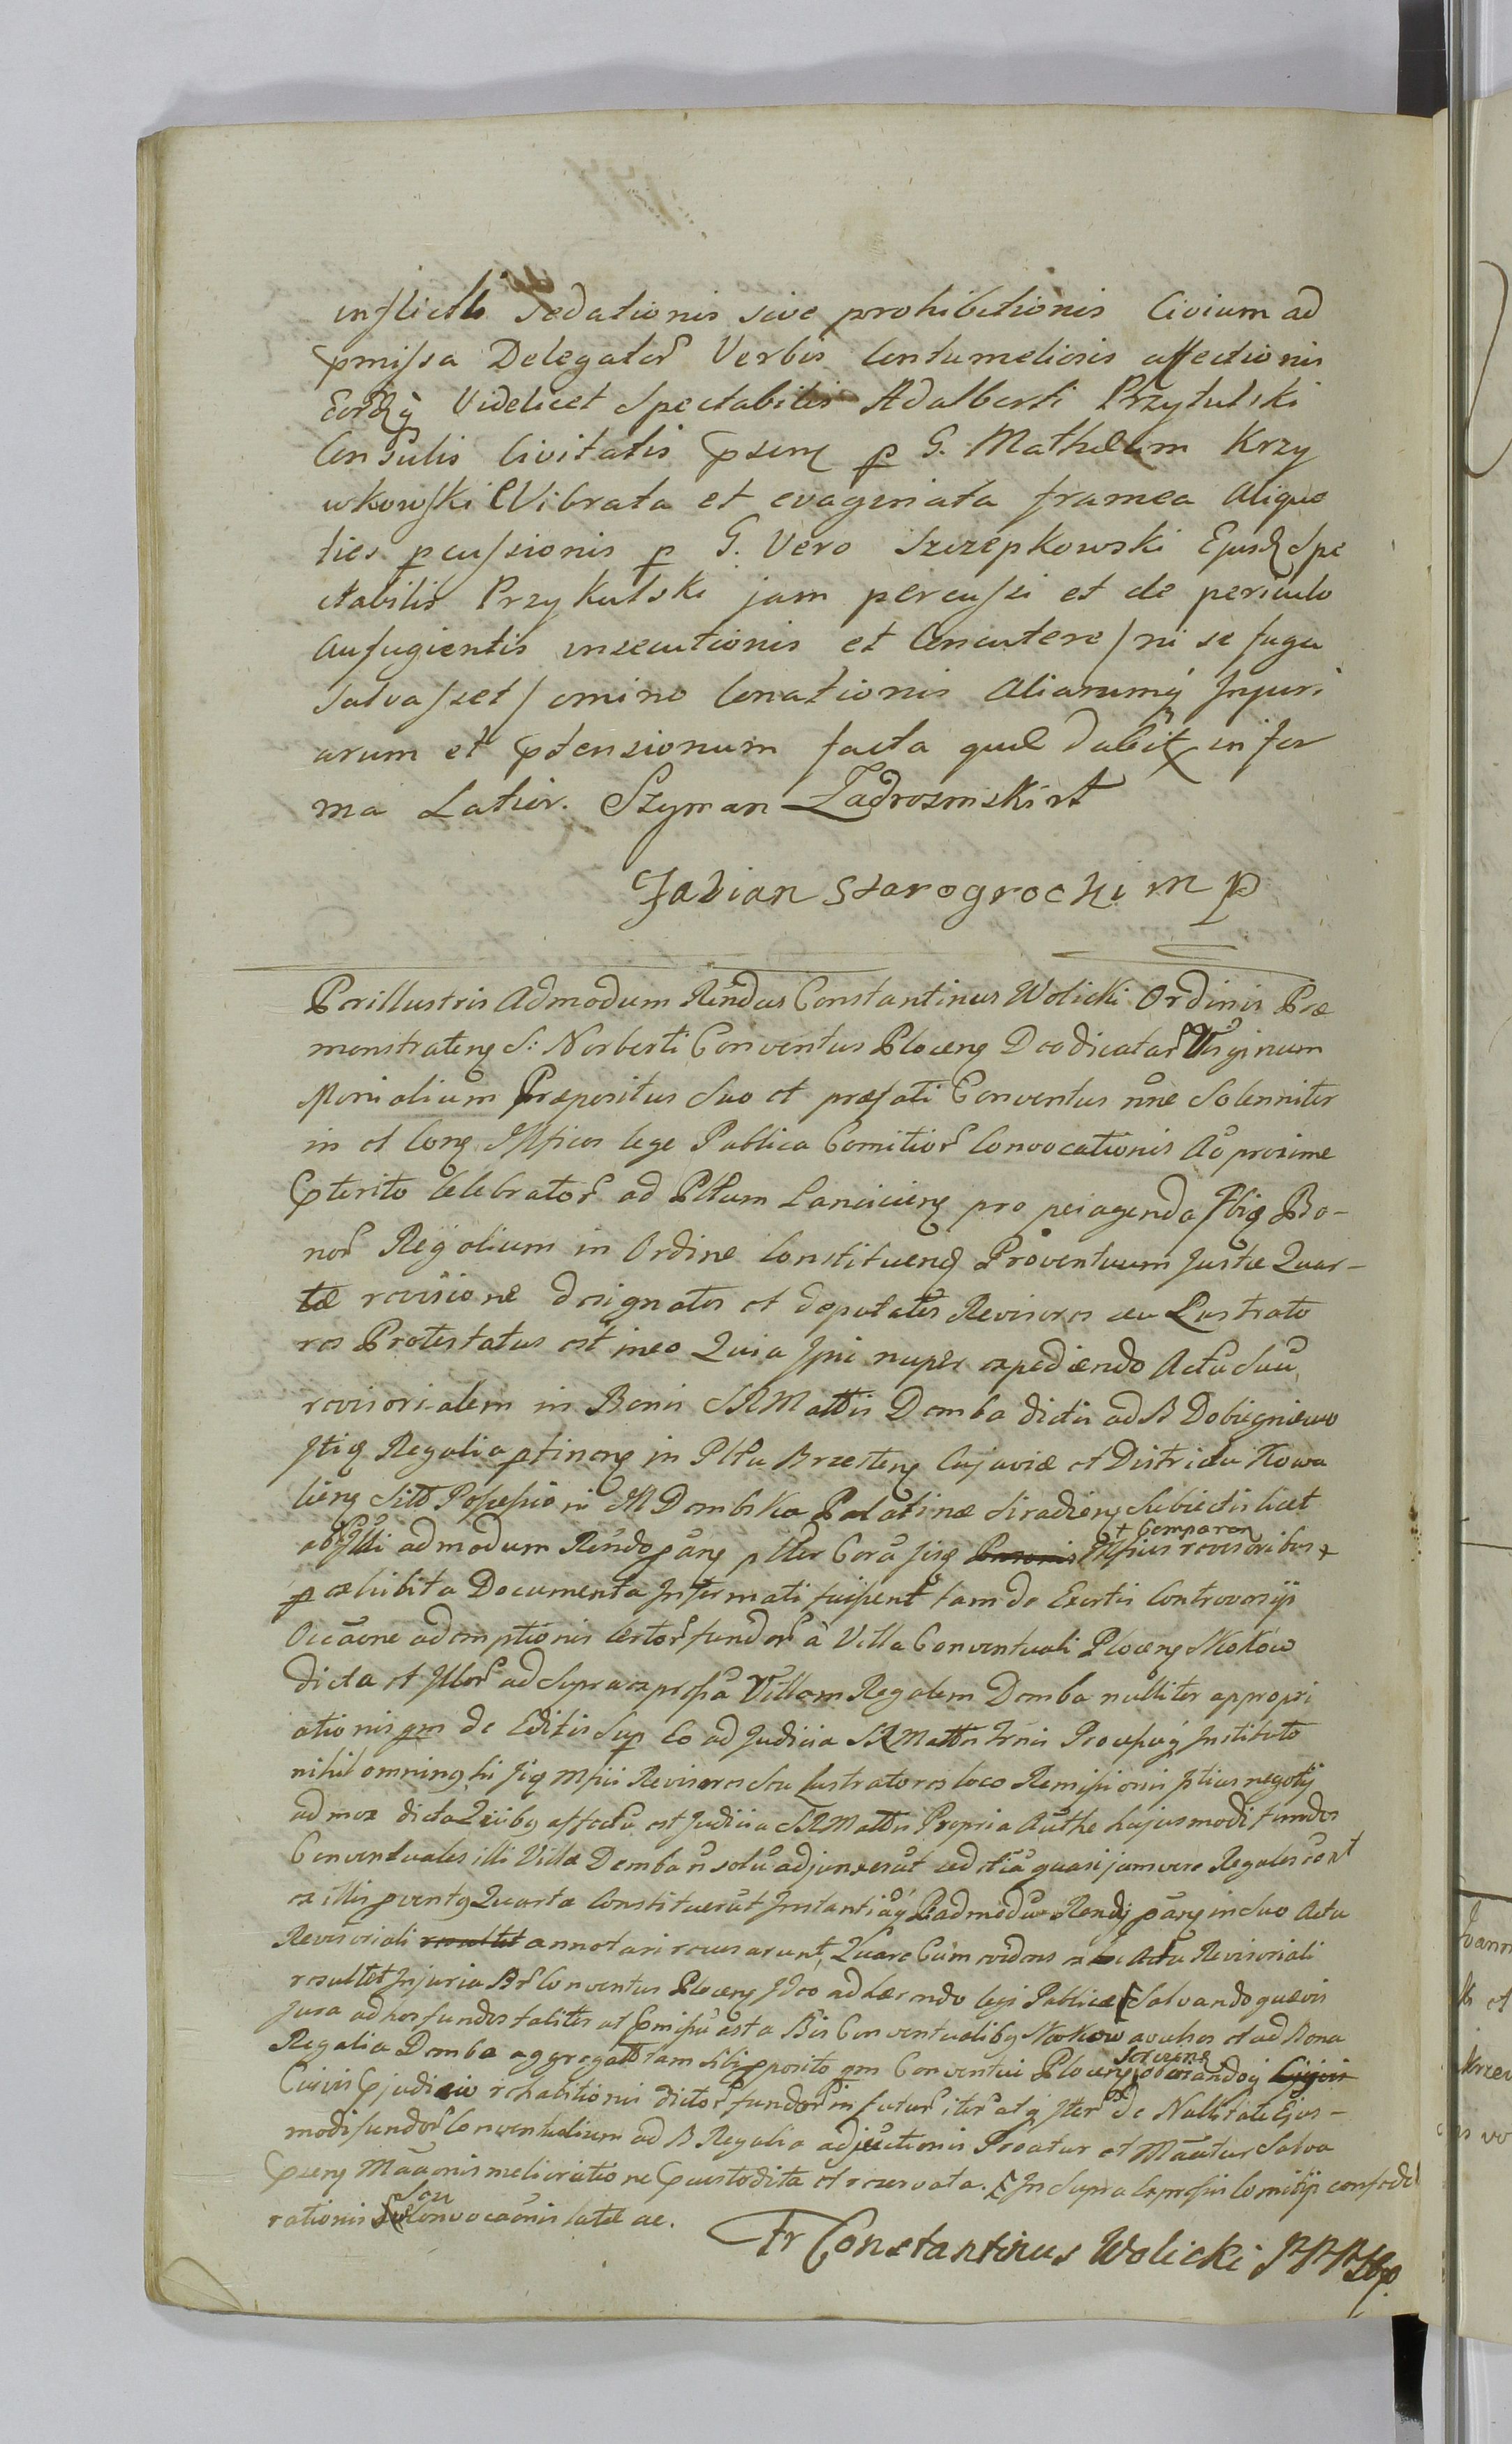 inflictū Sedationis sive prohibitionis Civium ad
pmissa Delegator Verbis Contumeliosis affectionis
Eordq Videlicet Spectabilis Adalberti Przytulski
Consulis Civitatis psenq p G. Matheum Krzy
wkowski Vibrata et evaginata framea Alique
ties pcussionis p G. Vero Szczepkowski Ejusd Spe
ctabilis Przykulski jam percussi et de periculo
aufugientis insecutionis et Concutere / ni se fuga
salvasset / omino Conationis Aliarumq Injuri
arum et ptensionum facta quæ dabit in for
ma Latior. Szyman Zadrozmski
Fabian Starogrocki mp
Perillustris Admodum Rendus Constantinus Wolicki Ordinis Præ
monstratenq S: Norberti Conventus Plocenq Deodicatar Virginum
Monialium Præpositus Suo et præfati Conventus nŏne Solenniter
in et Conq Mficos lege Publica Comitior Convocationis Ao proxime
pterito Celebrator ad Pltum Lancicienq pro peragenda Ibiq Bo-
nor Regalium in Ordine Constituenq Proventuum Justæ Quar-
tæ revisione designatos et deputatos Revisores seu Lustrato
res Protestatus est ineo Quia Ipsi nuper expediendo Actu Suu
revisorialem in Bonis SRMattis Domba dictis ad B Dobiegniewo
Itiq Regalia ptinenq in Pltu Brzestenq Cujaviæ et Districtu Kowa
lienq Sitis Possessioni M Dombska Palatinæ Siradienq Subiectis licet
ab Illi admodum Rendo panq pltter Cora Jisq Mficis revisoribus + et Comparen
p exhibita Documenta Informati fuissent tam de Exortis Controversijs
Occaone ademptionis certor fundor à Villa Conventuali Plocenq Skokow
dicta et Illor ad Supraexpressa Villam Regalem Domba nulliter appropri
ationis qm de Editis Sup Eo ad Judicia SRMattis Proceßuq Instituto
nihil omninq hi Jiq Mficii Revisores seu lustratores loco Remissionis ptius negotij
ad mox dicta Quibq affecta est Judicia SRMattis Propria Authe hujusmodi fundos
Conventuales illi Villæ Domba ñ solu adjunxerut sed etia quasi jam vere Regales
ex illis pventq Quartæ Constituerut Instantiaq admodu Rendi panq in Suo Actu
Revisoriali resultet annotari recusarunt, Quare Cum evidens ex Actu Revisoriali
resultet Injuria Br Conventus Plocenq Ideo adhærendo legi Publicæ Salvando quævis
Jura ad hos fundos taliter ut pmissu est a Bis Conventualibq Skokow avulsos et ad Bona
Regalia Domba aggregatos tam Sibi pposito qm Conventui Plocenq servienq obviandoq
Cuivis pjudicio rehabitionis dictor fundor in futur iter atq Iter de Nullitate Ejus-
modi fundor Conventualium ad B Regalia adjectionis Protatur et Mãtur Salva
psenq Mãonis melioratione pcustodita et reservata. In Supra expressis Comitijs confœde
rationis Seu Convocaõnis latæ ac.
Fr Constantinus Wolicki